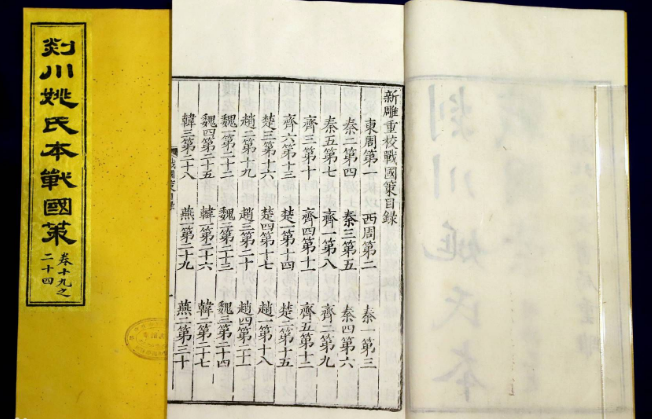 剡川姚氏本
新雕重校戰國策目録
東周第一 西周第二 秦一第三
秦二第四 秦三第五 秦四第六
秦五第七 齊一第八 齊二第九
齊三第十 齊四第十一 齊五第十二
齊六第十三 楚一第十四 楚二第十五
楚三第十六 楚四第十七 趙一第十八
趙二第十九 趙三第二十 趙四第二十一
魏一第二十二 魏二第二十三 魏三第二十四
魏四第二十五 韓一第二十六 韓二第二十七
韓三第二十八 燕一第二十九 燕二第三十
剡川姚氏本戰國策
卷十九之
二十四